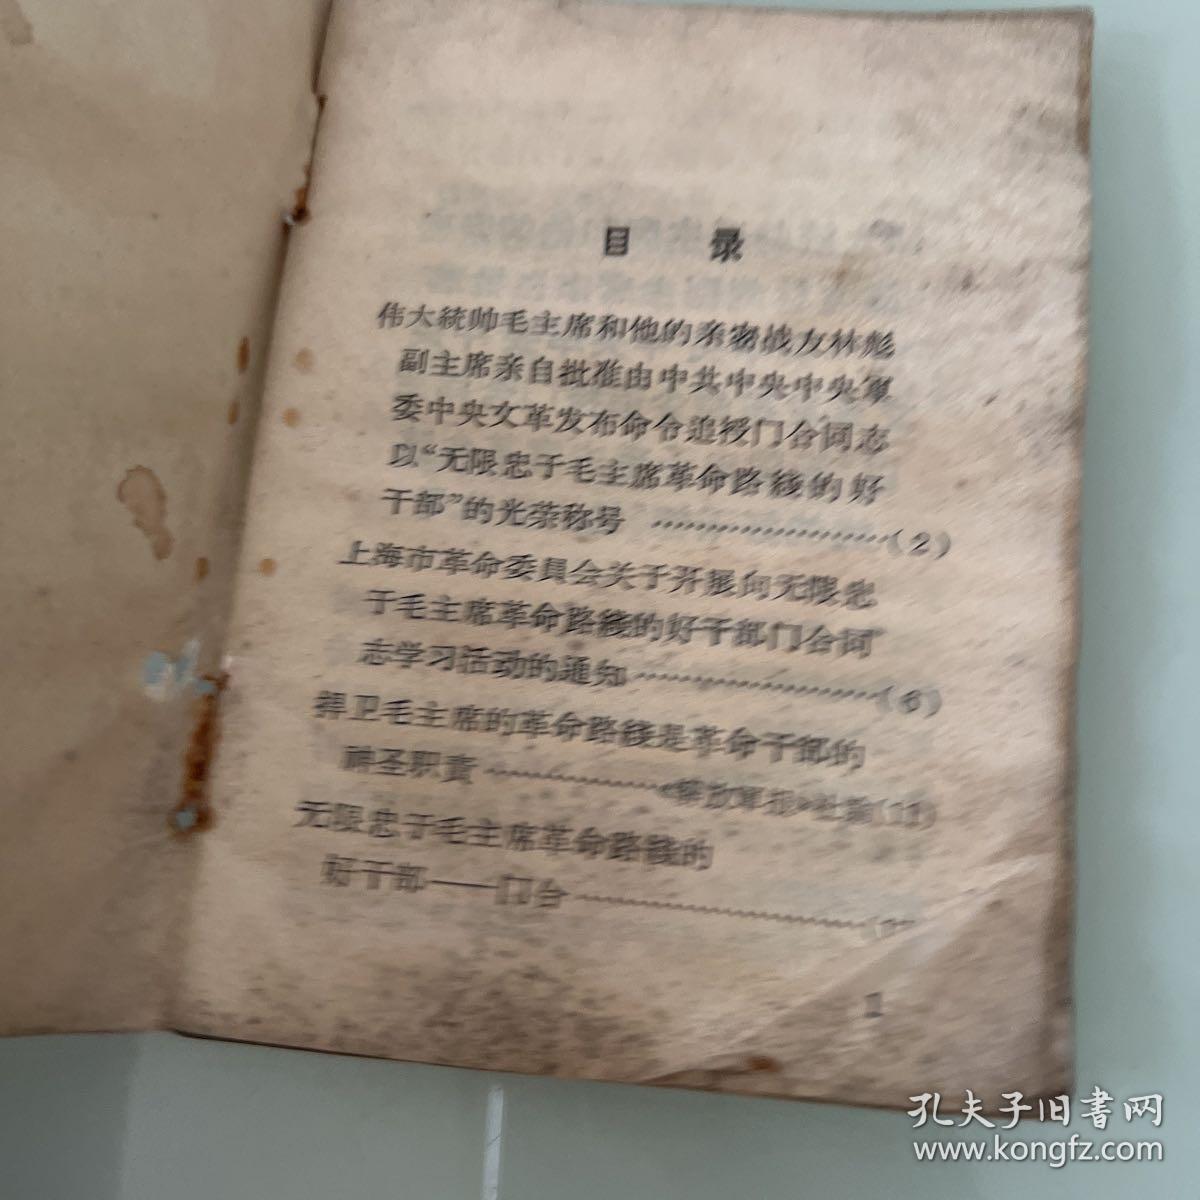 目 录
伟大統帅毛主席和他的亲密战友林彪
副主席亲自批准由中共中央中央軍
委中央文革发布命令追授门合同志
以“无限忠于毛主席革命路綫的好
干部”的光荣称号 ……………………(2)
上海市革命委員会关于开展向无限忠
于毛主席革命路綫的好干部门合同
志学习活动的通知……………………(6)
捍卫毛主席的革命路綫是革命干部的
神圣职責………………《解放軍报》社論(11)
无限忠于毛主席革命路綫的
好干部——门合……………………
1
孔夫子旧書网
www.kongfz.com